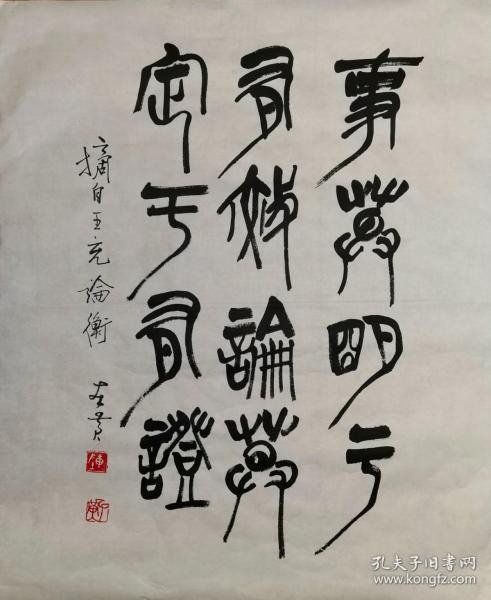 事莫明于
有效論莫
定于有證
摘自王充論衡
孔夫子旧书网
www.kongfz.com